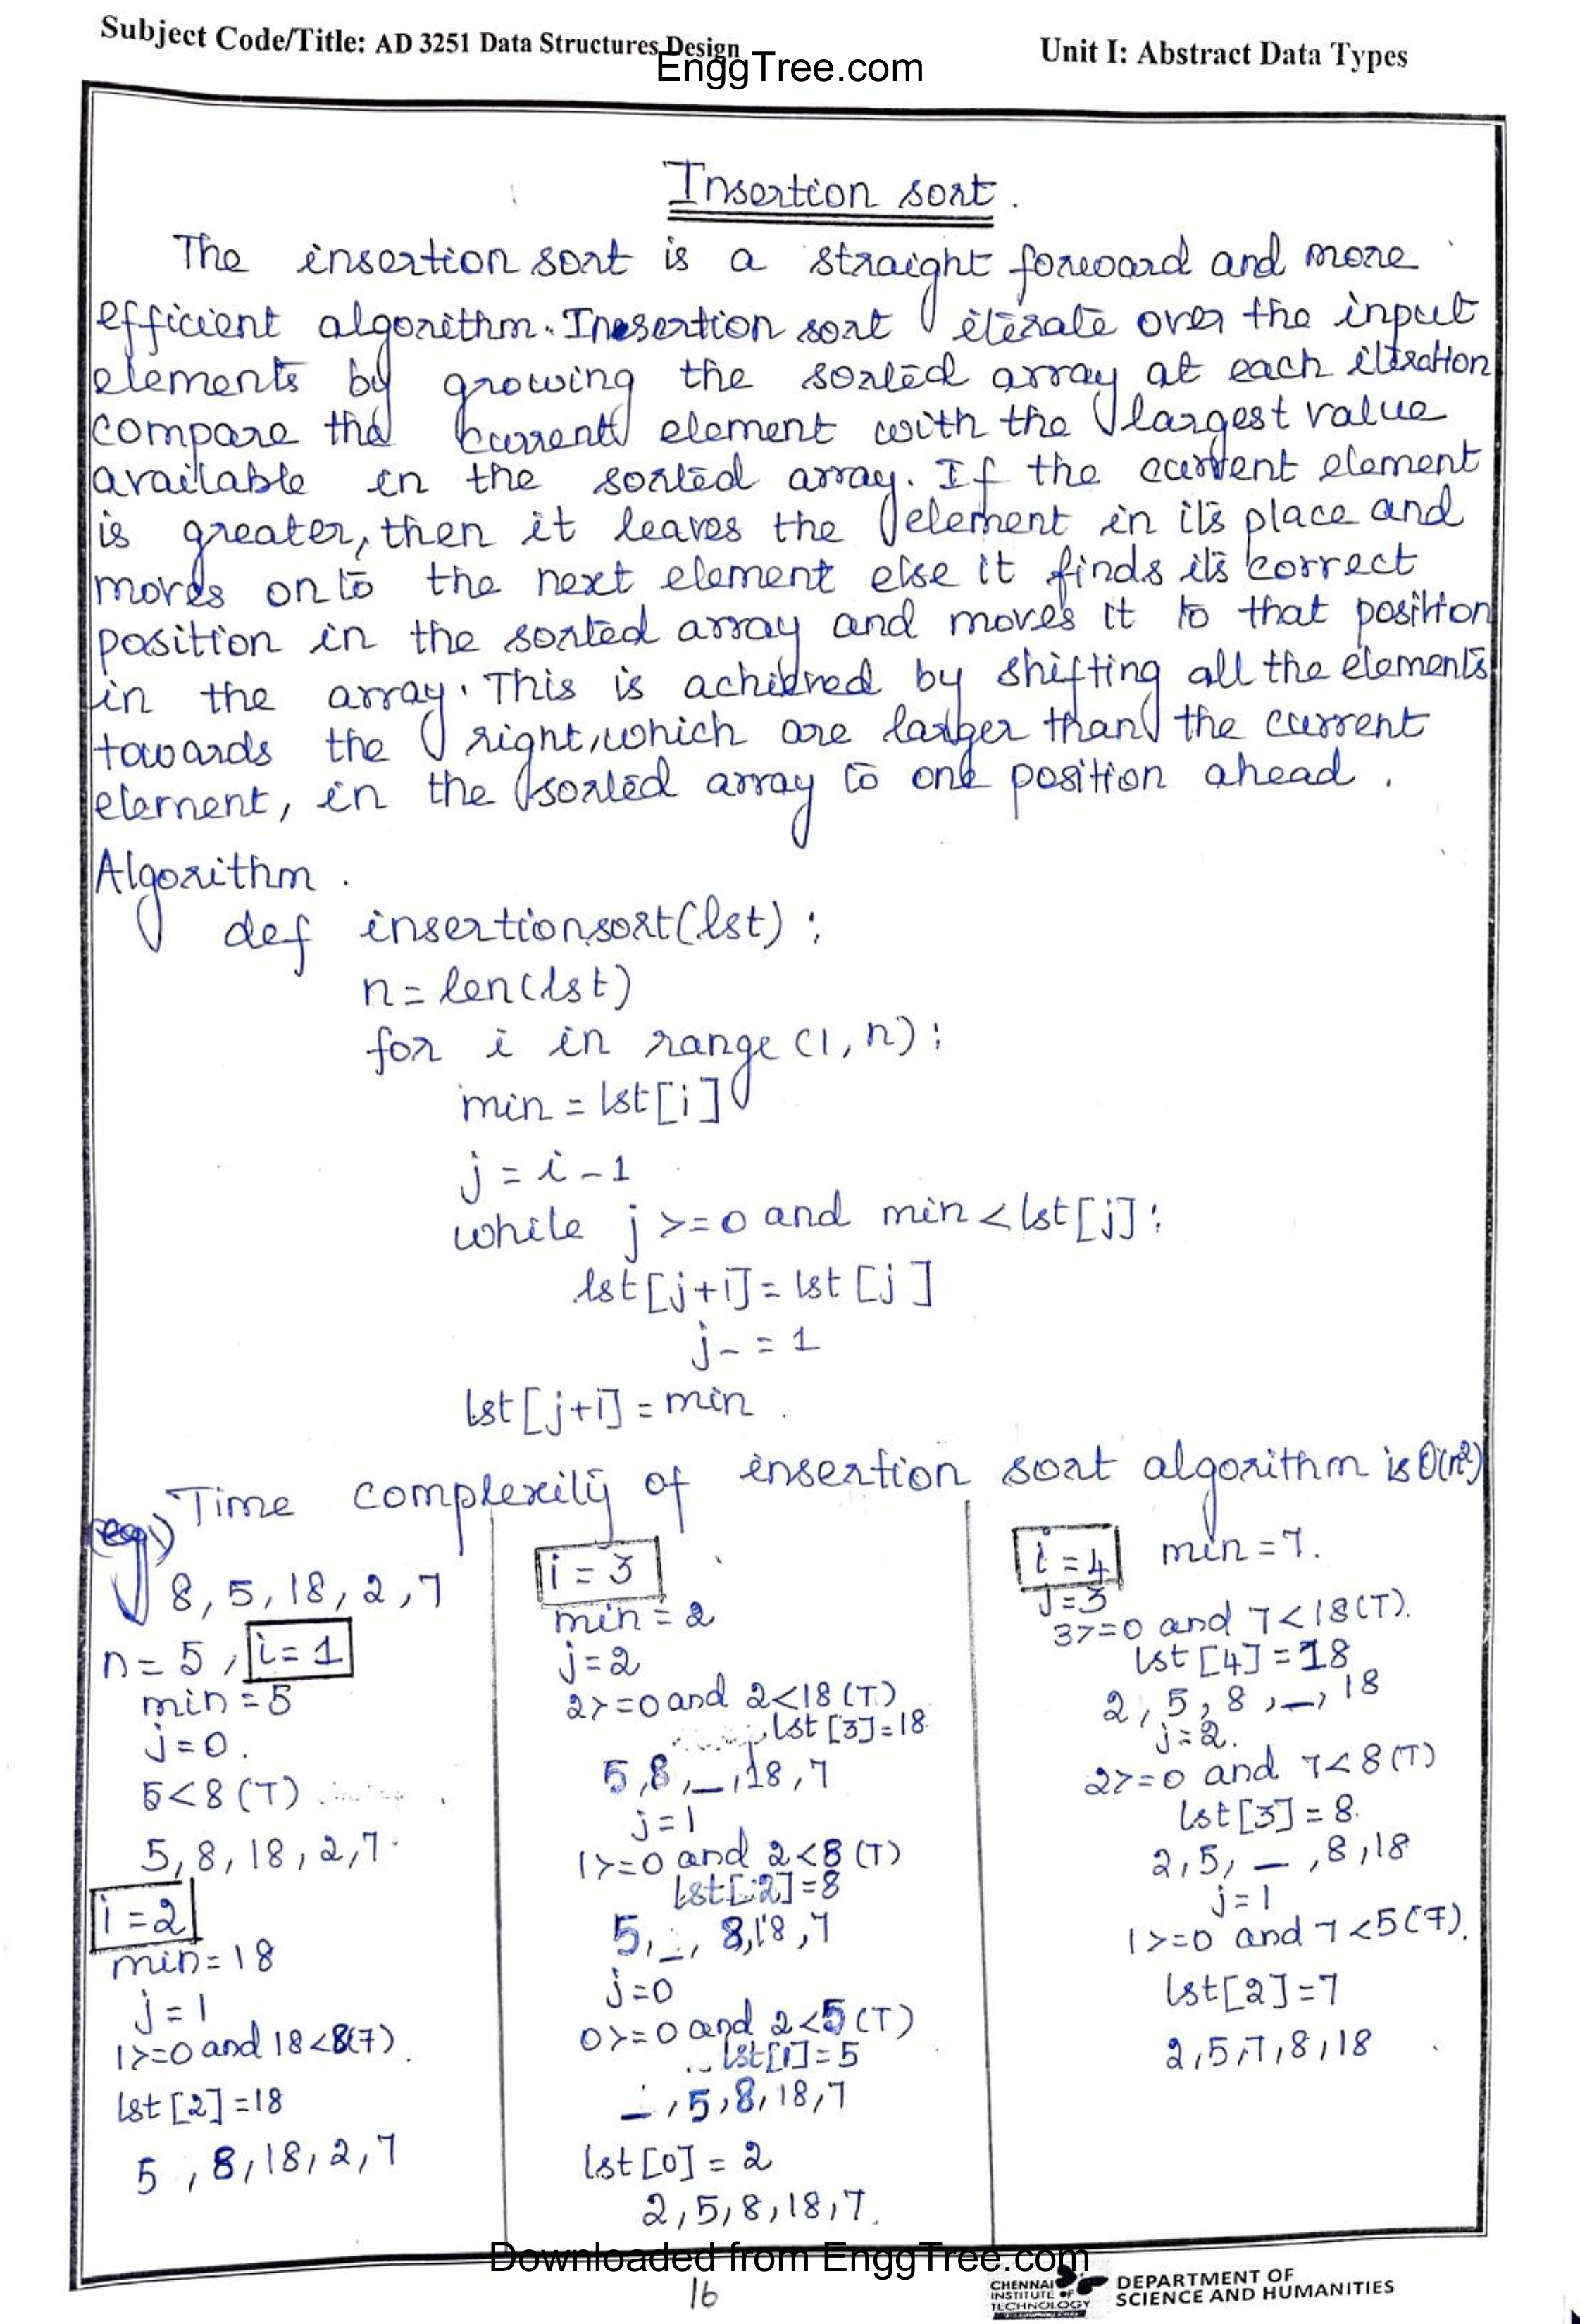 Subject Code/Title: AD 3251 Data Structures Design
EnggTree.com
Unit I: Abstract Data Types
Insertion sort.
The insertion sort is a straight forward and more
efficient algorithm. Inesertion sort iterate over the input
elements by growing the sorted array at each iteration
compare the current element with the largest value
available in the sorted array. If the current element
is greater, then it leaves the element in its place and
moves onto the next element else it finds its correct
position in the sorted array and moves it to that position
in the array. This is achieved by shifting all the elements
towards the right, which are larger than the current
element, in the sorted array to one position ahead.
Algorithm.
def insertionsort(lst):
n=len(lst)
for i in range(1,n):
min=lst[i]
j=i-1
while j>=0 and min<lst[j]:
lst[j+1]=lst[j]
j-=1
lst[j+1]=min.
Time complexity of insertion sort algorithm is O(n²)
(eg)
8,5,18,2,7
n=5, i=1
min=5
j=0.
5<8(T)
5,8,18,2,7.
i=2
min=18
j=1
1>=0 and 18<8(F).
lst[2]=18
5,8,18,2,7
i=3
min=2
j=2
2>=0 and 2<18(T)
lst[3]=18
5,8,_,18,7
j=1
1>=0 and 2<8(T)
lst[2]=8
5,_,8,18,7
j=0
0>=0 and 2<5(T)
lst[1]=5
_,5,8,18,7
lst[0]=2
2,5,8,18,7.
i=4 min=7.
j=3
3>=0 and 7<18(T).
lst[4]=18
2,5,8,_,18
j=2.
2>=0 and 7<8(T)
lst[3]=8.
2,5,_,8,18
j=1
1>=0 and 7<5(F).
lst[2]=7
2,5,7,8,18
Downloaded from EnggTree.com
16
CHENNAI
INSTITUTE OF
TECHNOLOGY
DEPARTMENT OF
SCIENCE AND HUMANITIES